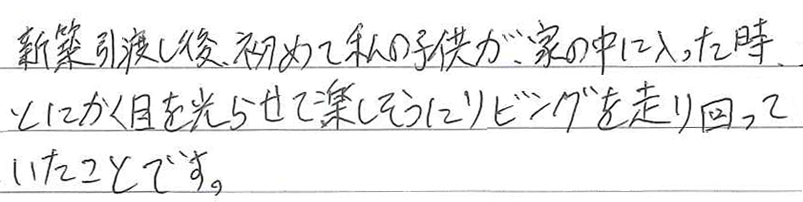 新築引渡し後、初めて私の子供が、家の中に入った時、
とにかく目を光らせて楽しそうにリビングを走り回って
いたことです。